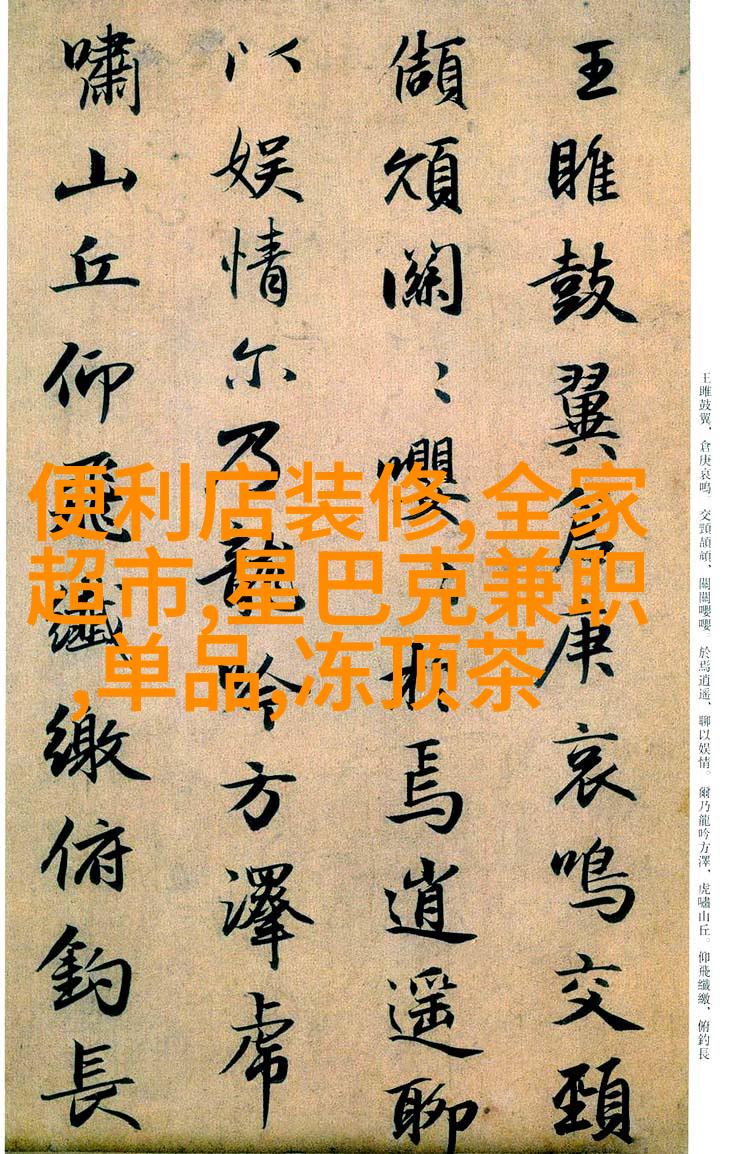 王雎鼓翼倉庚哀鳴交頸
頡頏關〻嚶〻於焉逍遥聊
以娱情尔乃龍吟方澤虎
嘯山丘仰飛纖繳俯釣長
便利店装修,全家
超市,星巴克兼职
,单品,冻顶茶
王雎鼓翼、倉庚哀鳴。交頸頡頏、關關嚶嚶。於焉逍遥、聊以娱情。爾乃龍吟方澤、虎嘯山丘。仰飛纖繳、俯釣長